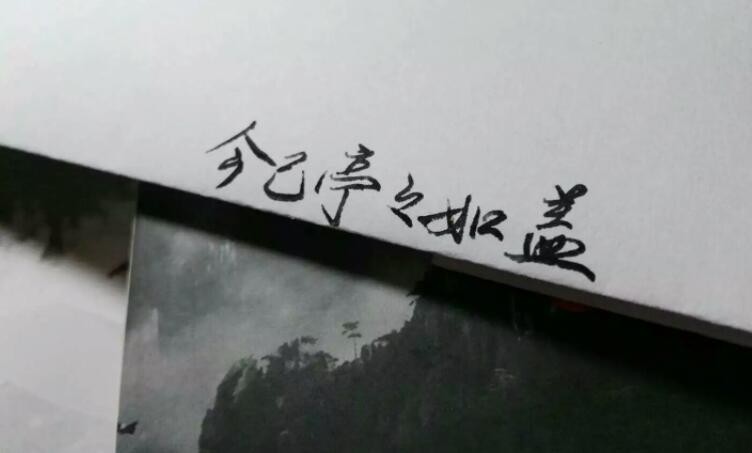 今已亭亭如盖